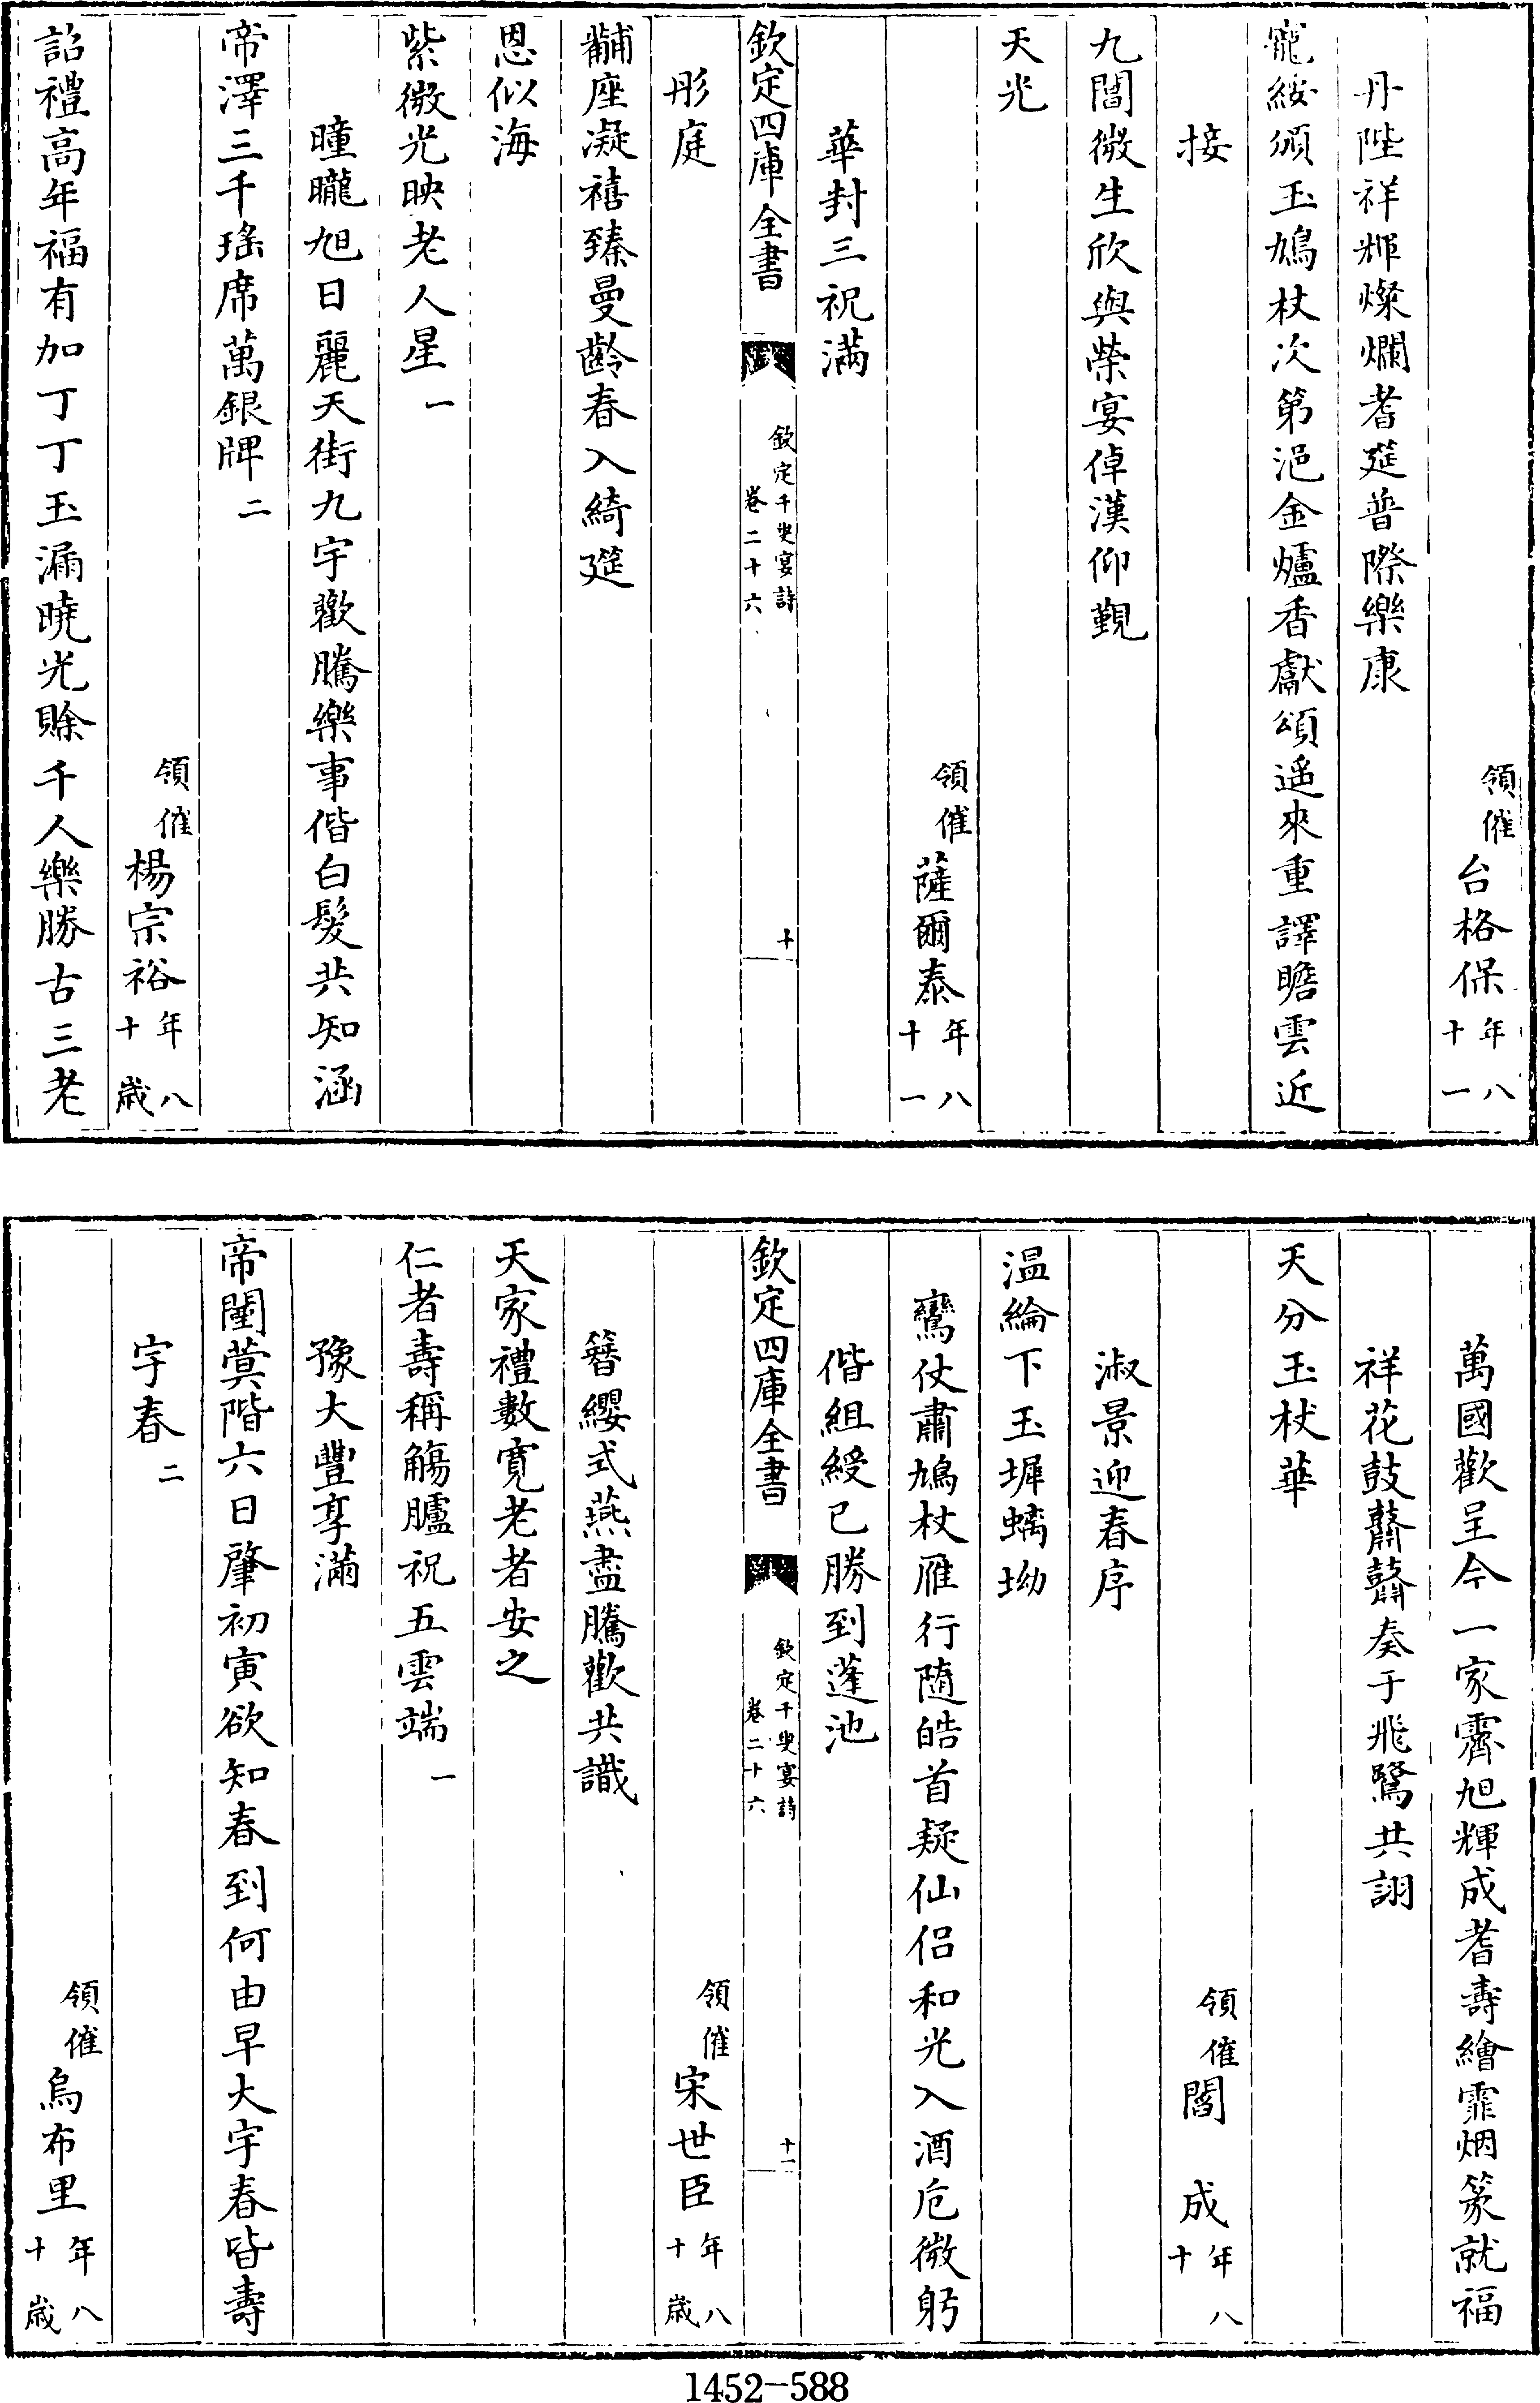 領催台格保年八十一
丹陛祥輝燦爛耆筵普際樂康
寵綏頒玉鳩杖次第浥金爐香獻頌遥來重譯瞻雲近
接
九閽微生欣與榮宴倬漢仰觀
天光
領催薩爾泰年八十一
華封三祝滿
欽定四庫全書 欽定千叟宴詩卷二十六 十
彤庭
黼座凝禧臻曼齡春入綺筵
恩似海
紫微光映老人星一
曈曨旭日麗天街九宇歡騰樂事偕白髮共知涵
帝澤三千瑤席萬銀牌二
領催楊宗裕年八十歲
詔禮高年福有加丁丁玉漏曉光賖千人樂勝古三老
萬國歡呈今一家霽旭輝成耆壽繪霏烟篆就福
祥花鼓鼘鼘奏于飛鷺共詡
天分玉杖華
領催閻成年八十
淑景迎春序
温綸下玉墀螭坳
鸞仗肅鳩杖雁行随皓首疑仙侣和光入酒卮微躬
偕組綬已勝到蓬池
欽定四庫全書 欽定千叟宴詩卷二十六 十一
領催宋世臣年八十歲
簪纓式燕盡騰歡共識
天家禮數寛老者安之
仁者壽稱觴臚祝五雲端一
豫大豐亨滿
帝闉蓂階六日肇初寅欲知春到何由早大宇春皆壽
宇春二
領催烏布里年八十歲
1452-588